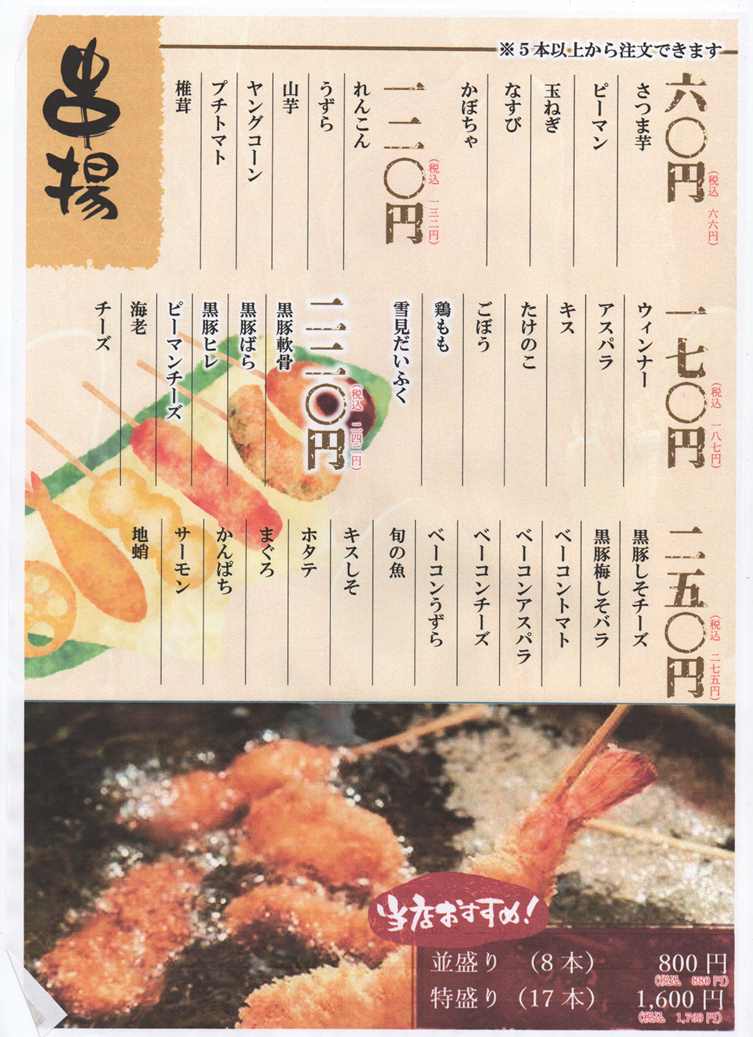 串揚
※５本以上から注文できます
六〇円
(税込 六六円)
さつま芋
ピーマン
玉ねぎ
なすび
かぼちゃ
一二〇円
(税込 一三二円)
れんこん
うずら
山芋
ヤングコーン
プチトマト
椎茸
一七〇円
(税込 一八七円)
ウィンナー
アスパラ
キス
たけのこ
ごぼう
鶏もも
雪見だいふく
二二〇円
(税込 二四二円)
黒豚軟骨
黒豚ばら
黒豚ヒレ
ピーマンチーズ
海老
チーズ
二五〇円
(税込 二七五円)
黒豚しそチーズ
黒豚梅しそバラ
ベーコントマト
ベーコンアスパラ
ベーコンチーズ
ベーコンうずら
旬の魚
キスしそ
ホタテ
まぐろ
かんぱち
サーモン
地蛸
当店おすすめ！
並盛り（8本） 800円
(税込 880円)
特盛り（17本） 1,600円
(税込 1,760円)